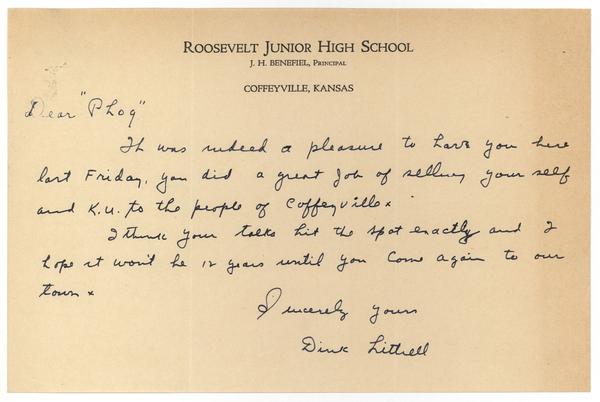 ROOSEVELT JUNIOR HIGH SCHOOL
J. H. BENEFIEL, PRINCIPAL
COFFEYVILLE, KANSAS
Dear "Phog"
It was indeed a pleasure to have you here
last Friday, you did a great job of selling your self
and K.U. to the people of Coffeyville.
I think your talks hit the spot exactly and I
hope it won't be 12 years until you come again to our
town.
Sincerely yours
Dink Littrell